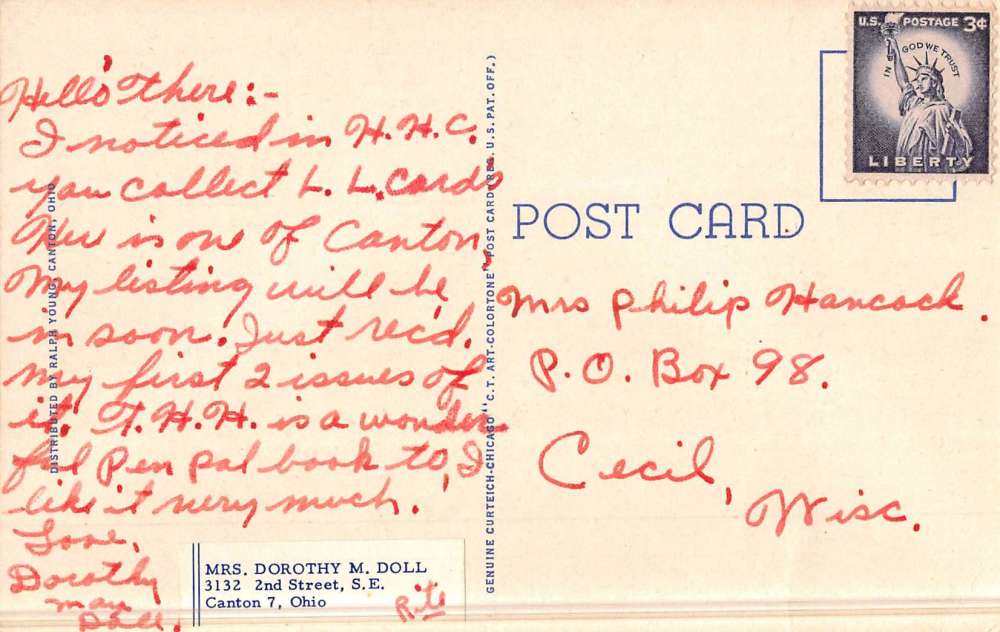 Hello there:-
I noticed in H.H.C.
you collect L. L. Cards
Here is one of Canton,
My listing will be
in soon. Just rec'd.
my first 2 issues of
it. T.H.H. is a wonder
ful Pen pal book to, I
like it very much.
Love,
Dorothy
May
Doll.
MRS. DOROTHY M. DOLL
3132 2nd Street, S.E.
Canton 7, Ohio
Rite
DISTRIBUTED BY RALPH YOUNG, CANTON, OHIO
GENUINE CURTEICH-CHICAGO "C.T. ART-COLORTONE" POST CARD (REG. U.S. PAT. OFF.)
U.S. POSTAGE 3¢
IN GOD WE TRUST
LIBERTY
POST CARD
Mrs Philip Hancock.
P.O. Box 98.
Cecil,
Wisc.